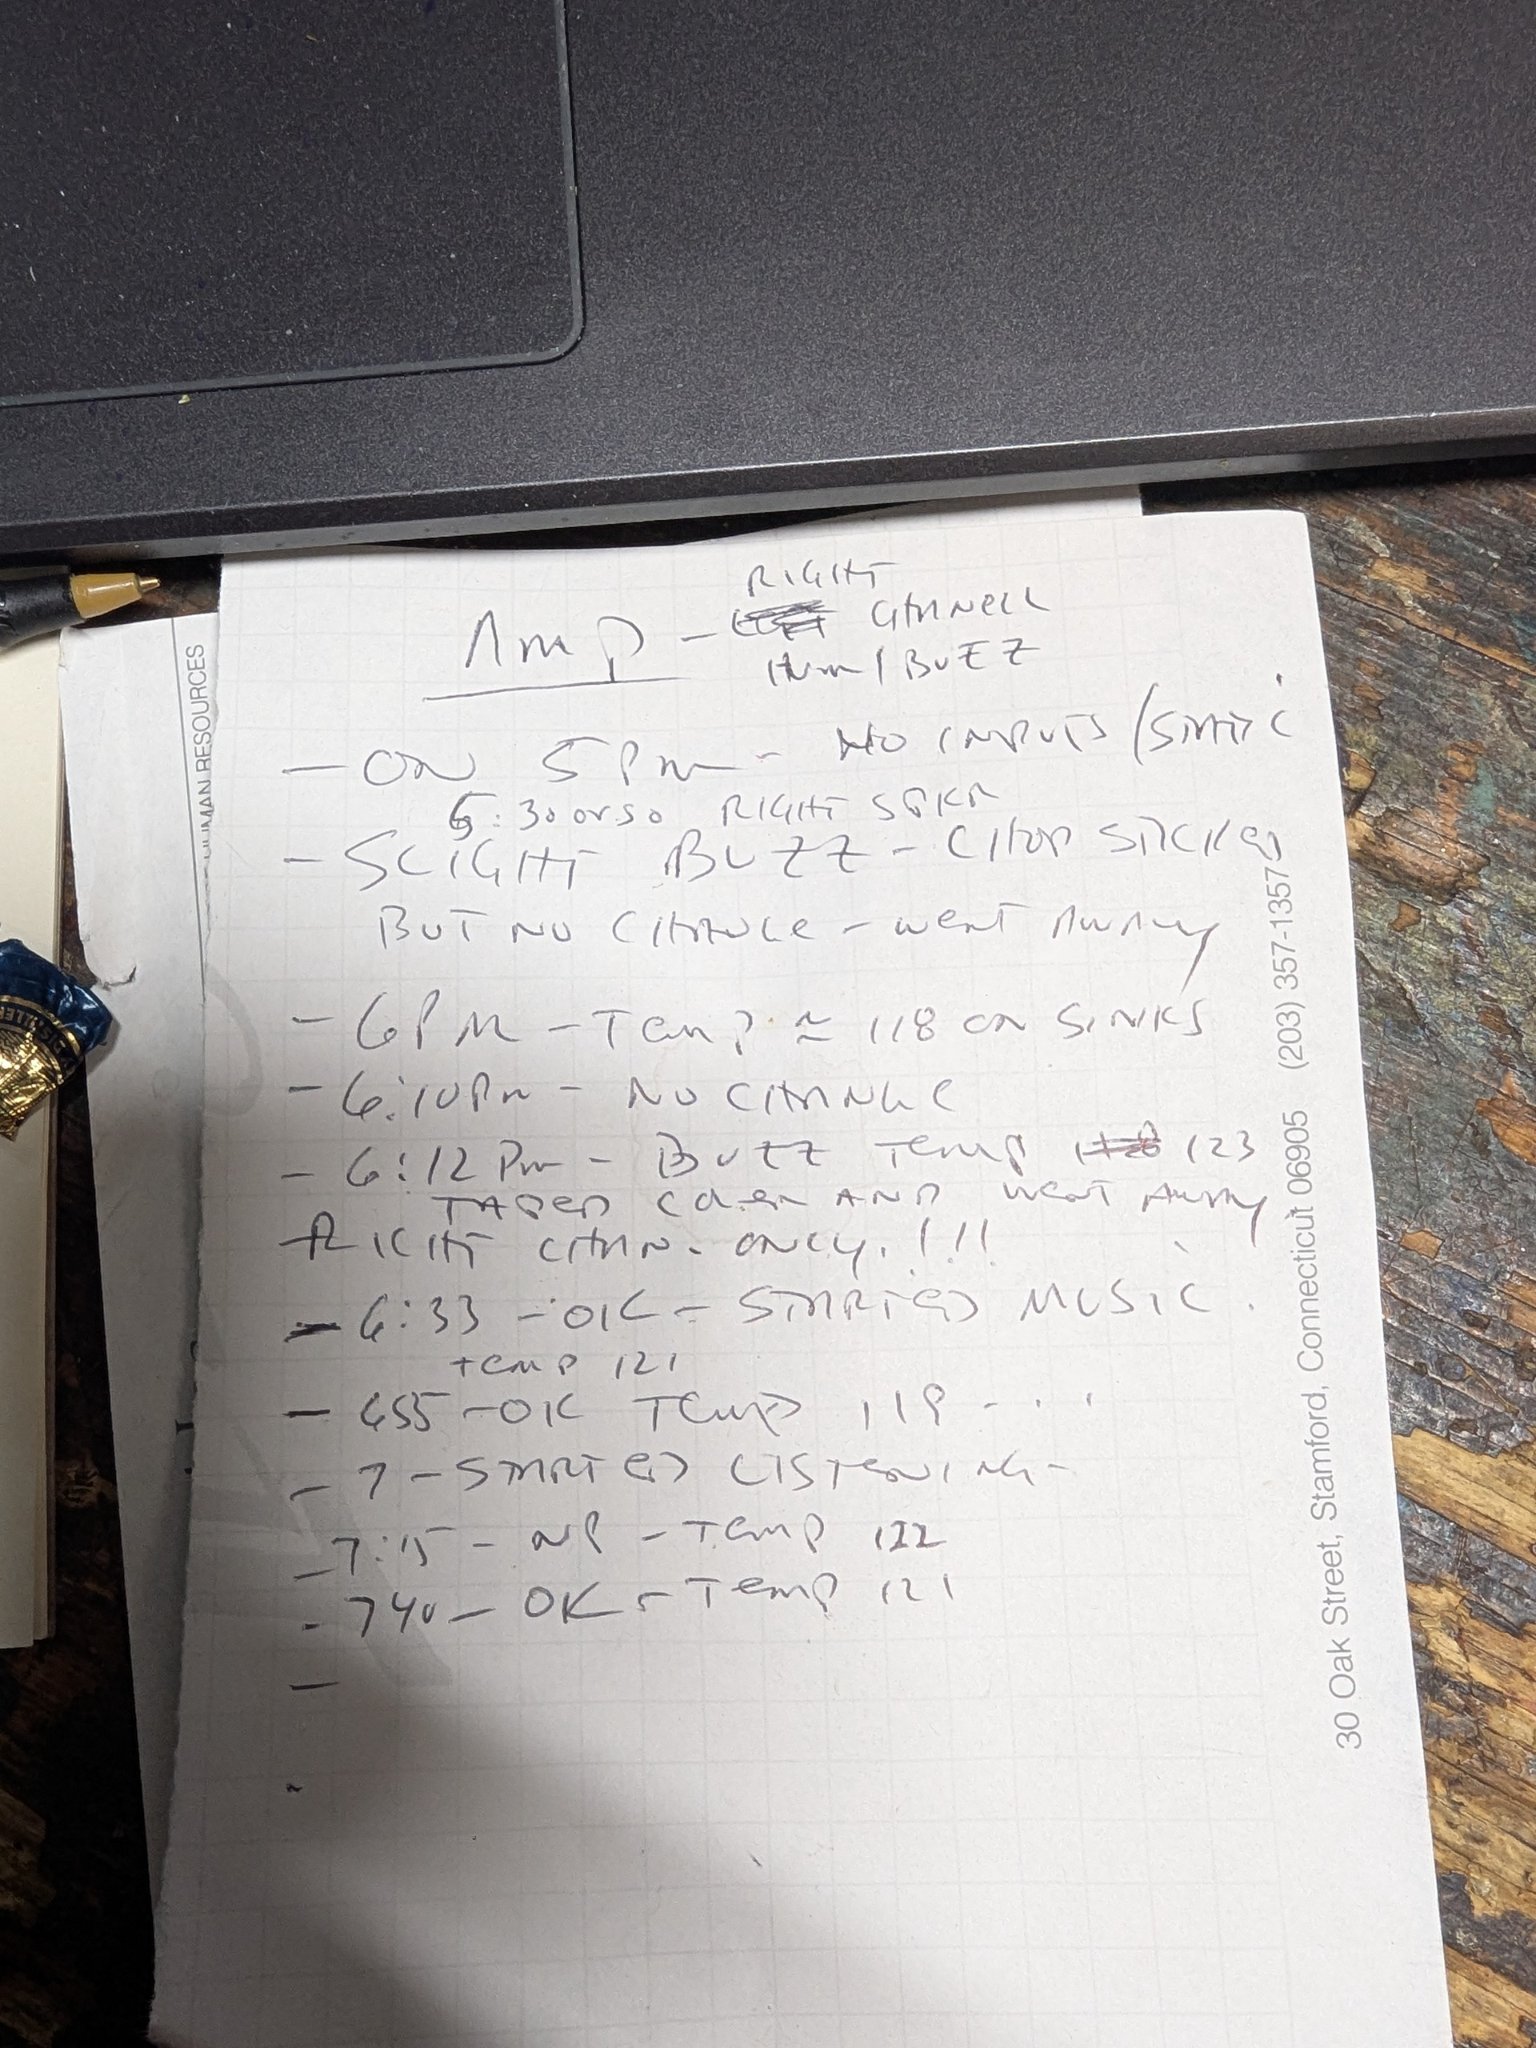 RIGHT
Amp - CHANNEL
HUM / BUZZ
- ON 5 PM - NO INPUTS / STATIC
5:30 or so RIGHT SPKR
- SLIGHT BUZZ - CHOP STICKED
BUT NO CHANGE - WENT AWAY
- 6 PM - Temp ≈ 118 ON SINKS
- 6:10 PM - NO CHANGE
- 6:12 PM - BUZZ Temp 123
TAPED AND WENT AWAY
RIGHT CHAN. ONLY. !!!
- 6:33 - OK - STARTED MUSIC.
Temp 121
- 655 - OK Temp 119 - . .
- 7 - STARTED LISTENING -
- 7:15 - NP - Temp 122
- 740 - OK - Temp 121
-
HUMAN RESOURCES
30 Oak Street, Stamford, Connecticut 06905 (203) 357-1357